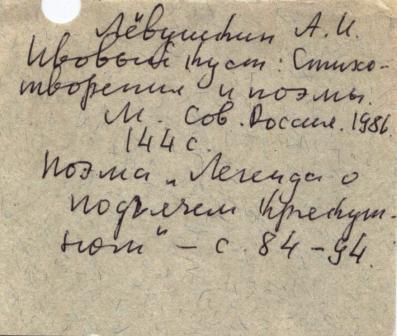 Лёвушкин А. И.
Ивовый куст: Стихо-
творения и поэмы.
М. Сов. Россия. 1986.
144 с.
Поэма „Легенда о
подъячем Крякут-
ном" – с. 84 – 94.